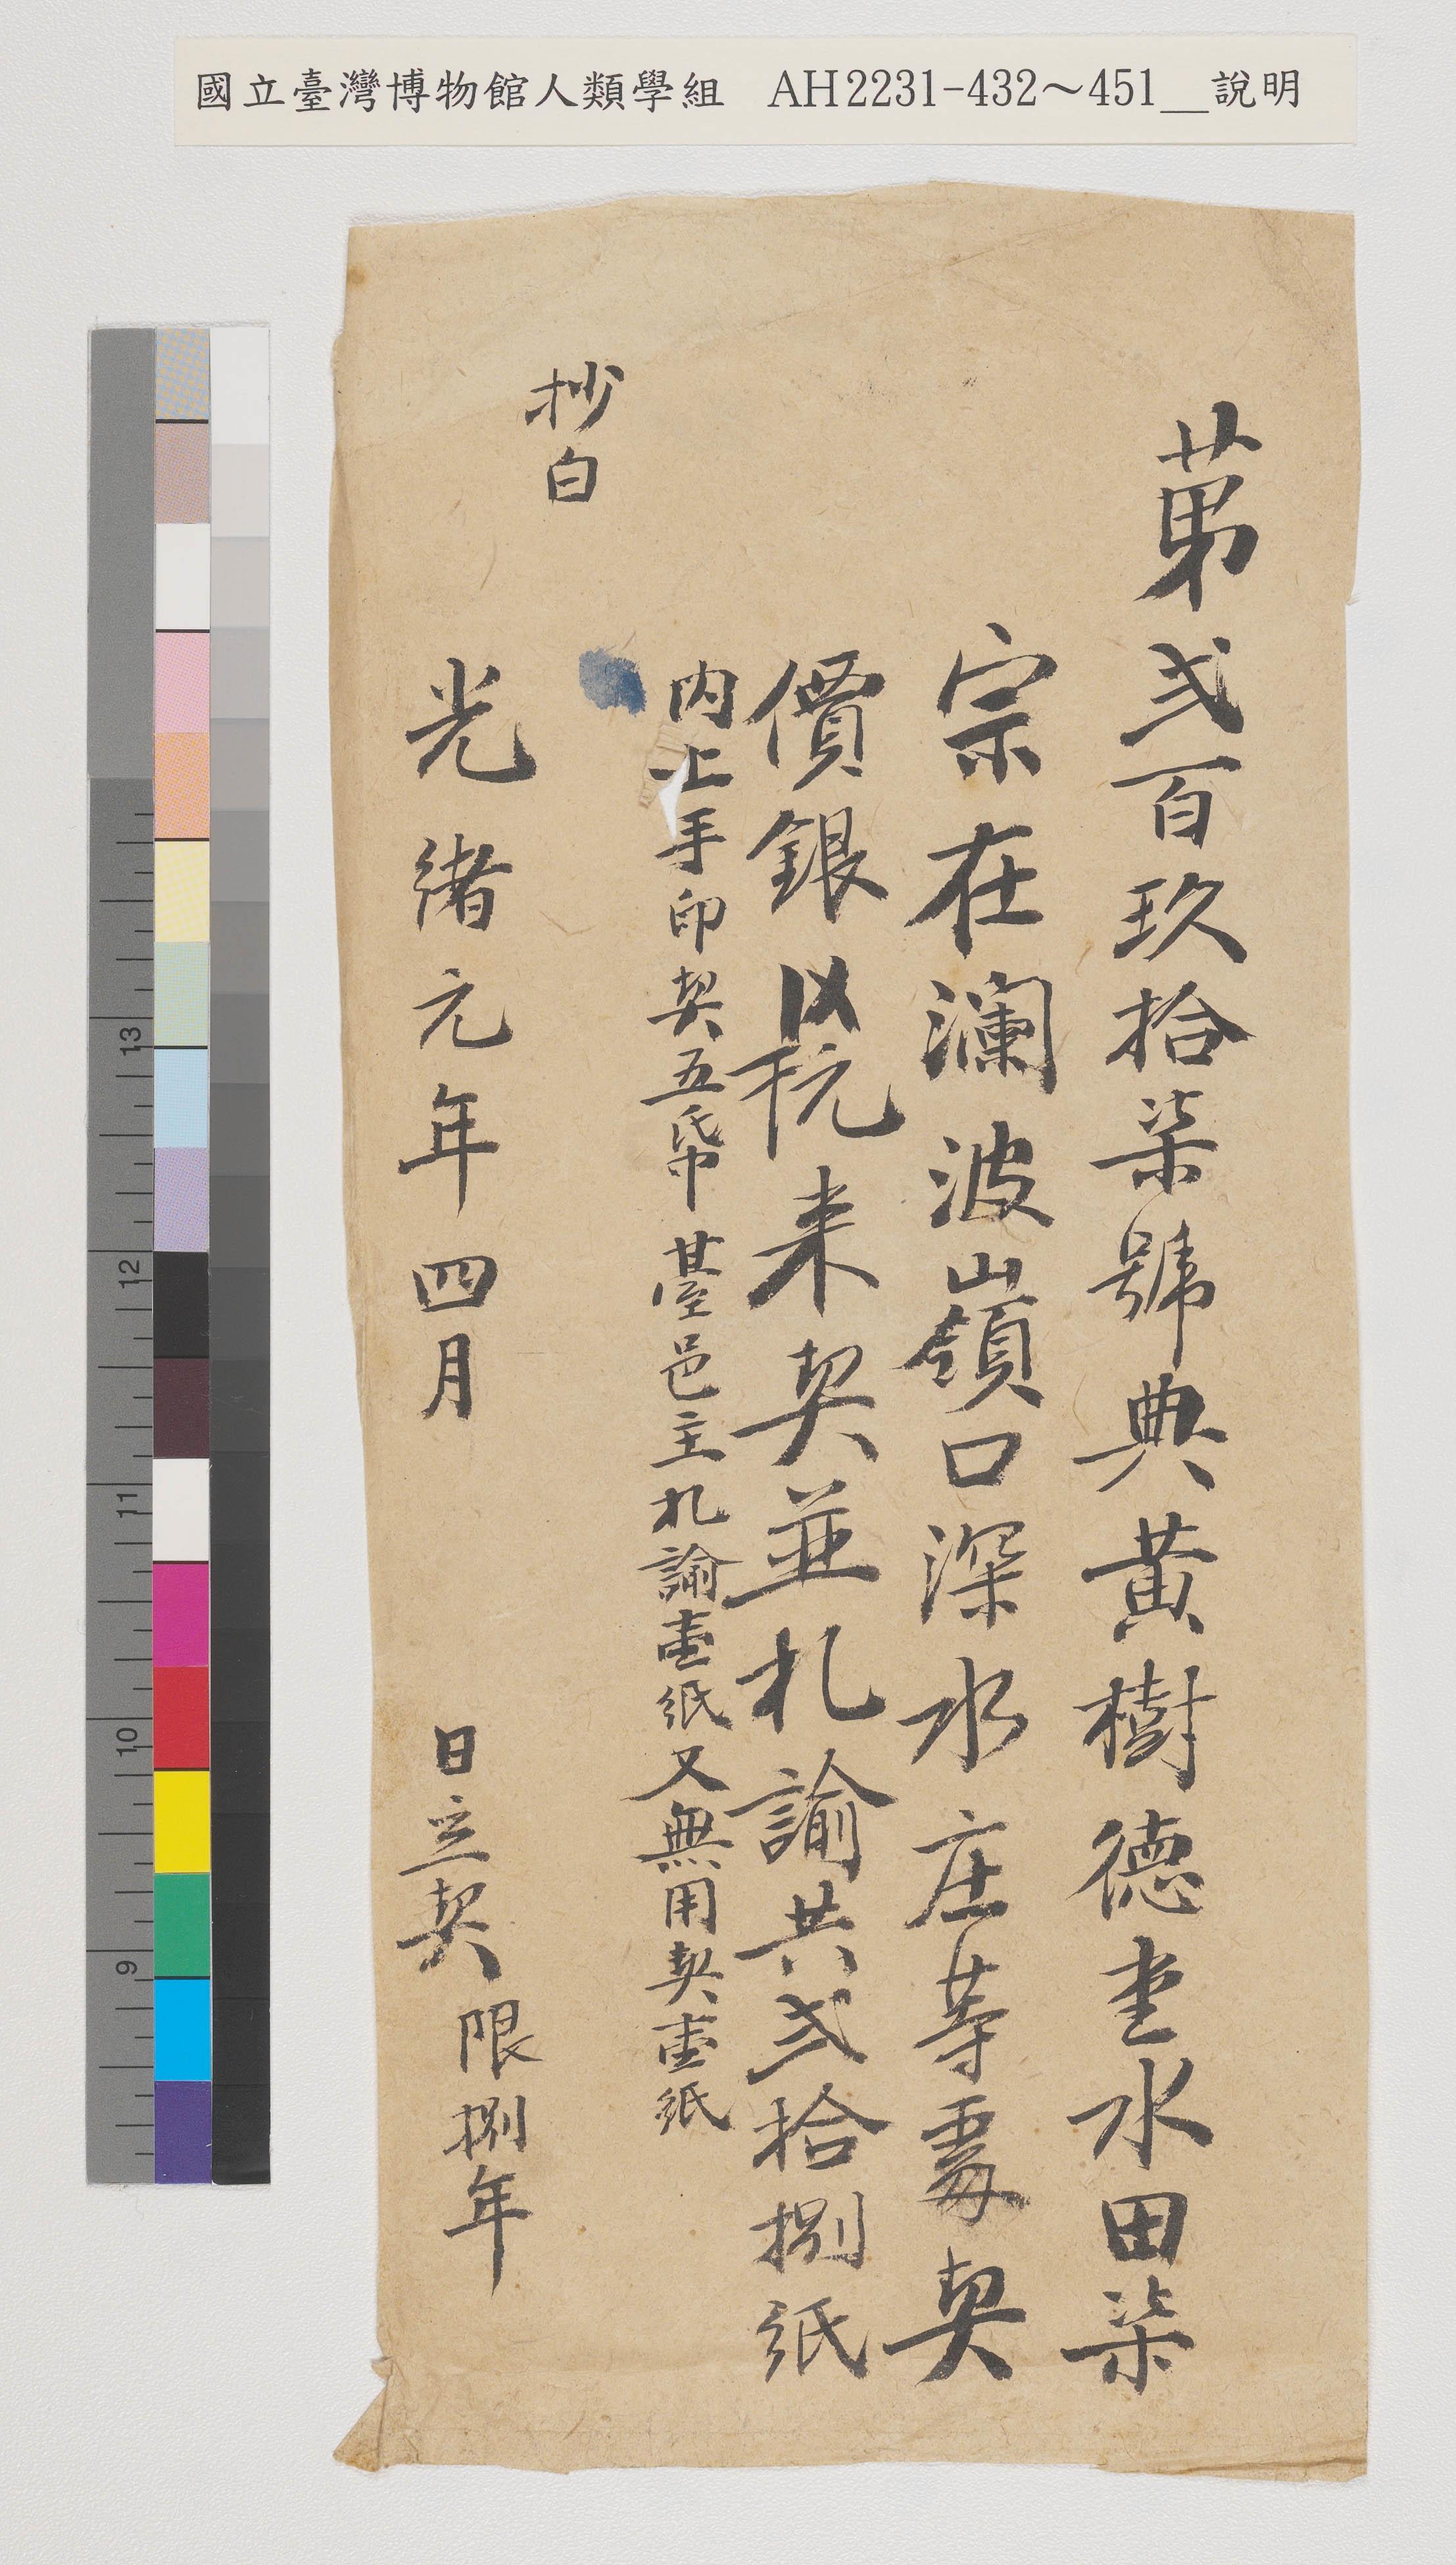 國立臺灣博物館人類學組 AH2231-432~451__說明
苐弍百玖拾柒號典黃樹德堂水田柒
宗在瀾波嶺口深水庄等處契
價銀 来契並札諭共弍拾捌紙
內上手印契五帋 䑓邑主札諭壹紙又無用契壹紙
抄白
光緒元年四月 日立契限捌年
13
12
11
10
9